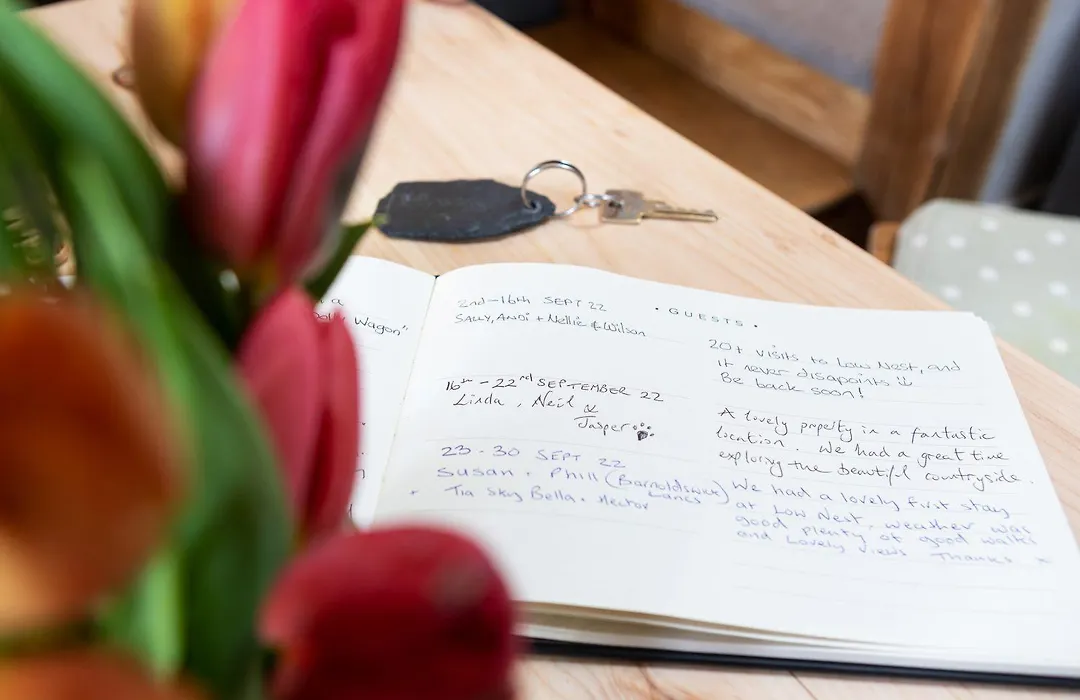 a
Wagon"
2nd-16th SEPT 22
• GUESTS •
SALLY, ANDI + Nellie & Wilson
20+ visits to Low Nest, and
it never disapoints
Be back soon!
16th - 22nd SEPTEMBER 22
Linda, Neil &
Jasper
A lovely property in a fantastic
location. We had a great time
exploring the beautiful countryside.
23-30 SEPT 22
Susan + Phill (Barnoldswick)
Lancs
+ Tia Sky Bella + Hector
We had a lovely first stay
at Low Nest, weather was
good plenty of good walks
and Lovely views Thanks x